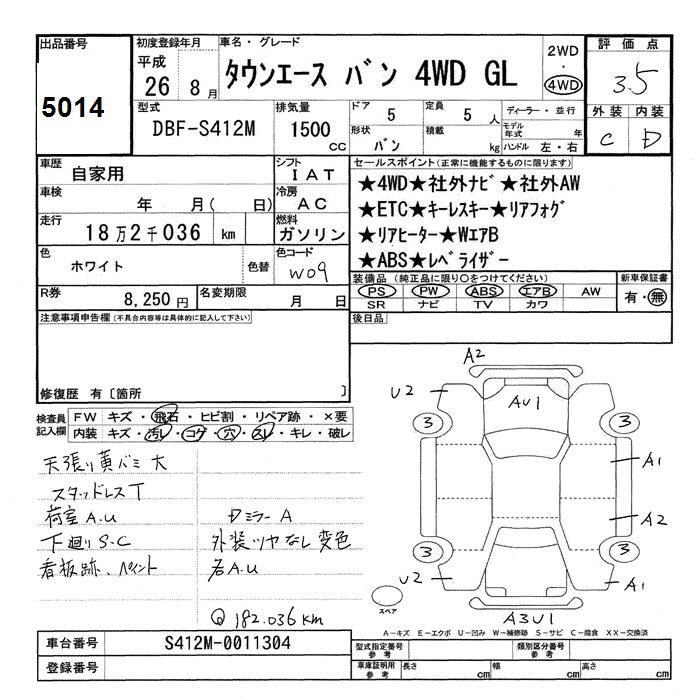 出品番号
5014
初度登録年月
平成
26 8月
車名・グレード
タウンエース バン 4WD GL
2WD
・
4WD
評価点
3.5
外装 内装
C D
型式
DBF-S412M
排気量
1500 cc
ドア 5
定員 5 人
形状 バン
積載 kg
ディーラー・並行
モデル年式 年
ハンドル 左・右
車歴
自家用
シフト
IAT
車検
年 月( 日)
冷房
AC
走行
18万2千036 km
燃料
ガソリン
色
ホワイト
色替
色コード
W09
R券
8,250円
名変期限
月 日
セールスポイント(正常に機能するものに限ります)
★4WD★社外ナビ★社外AW
★ETC★キーレスキー★リアフォグ
★リアヒーター★WエアB
★ABS★レベライザー
装備品 (純正品に限り○をつけてください)
PS PW ABS エアB AW
SR ナビ TV カワ
新車保証書
有・無
後日品
注意事項申告欄(不具合内容等は具体的に記入して下さい)
修復歴 有〔箇所 〕
検査員記入欄
FW キズ・飛石・ヒビ割・リペア跡・×要
内装 キズ・汚レ・コゲ・穴・スレ・キレ・破レ
天張り黄バミ大
スタッドレスT
荷室A.U
下廻りS.C
看板跡、ペイント
Dミラー A
外装ツヤなし変色
各A.U
Q 182.036km
A2
U2
AU1
3
3
A1
A2
3
3
U2
A1
A3U1
スペア
A-キズ E-エクボ U-凹み W-補修跡 S-サビ C-腐食 XX-交換済
車台番号
S412M-0011304
登録番号
型式指定番号
参考
類別区分番号
参考
車庫証明用
参考
長さ cm
幅 cm
高さ cm